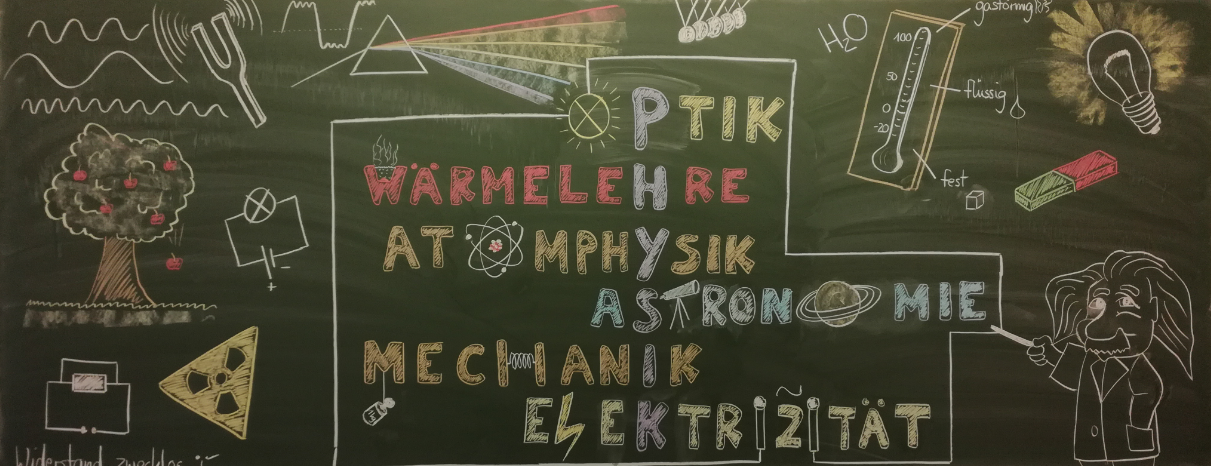 H₂O
gasförmig
100
50
0
-20
flüssig
fest
OPTIK
WÄRMELEHRE
ATOMPHYSIK
ASTRONOMIE
MECHANIK
ELEKTRIZITÄT
+
-
Widerstand zwecklos